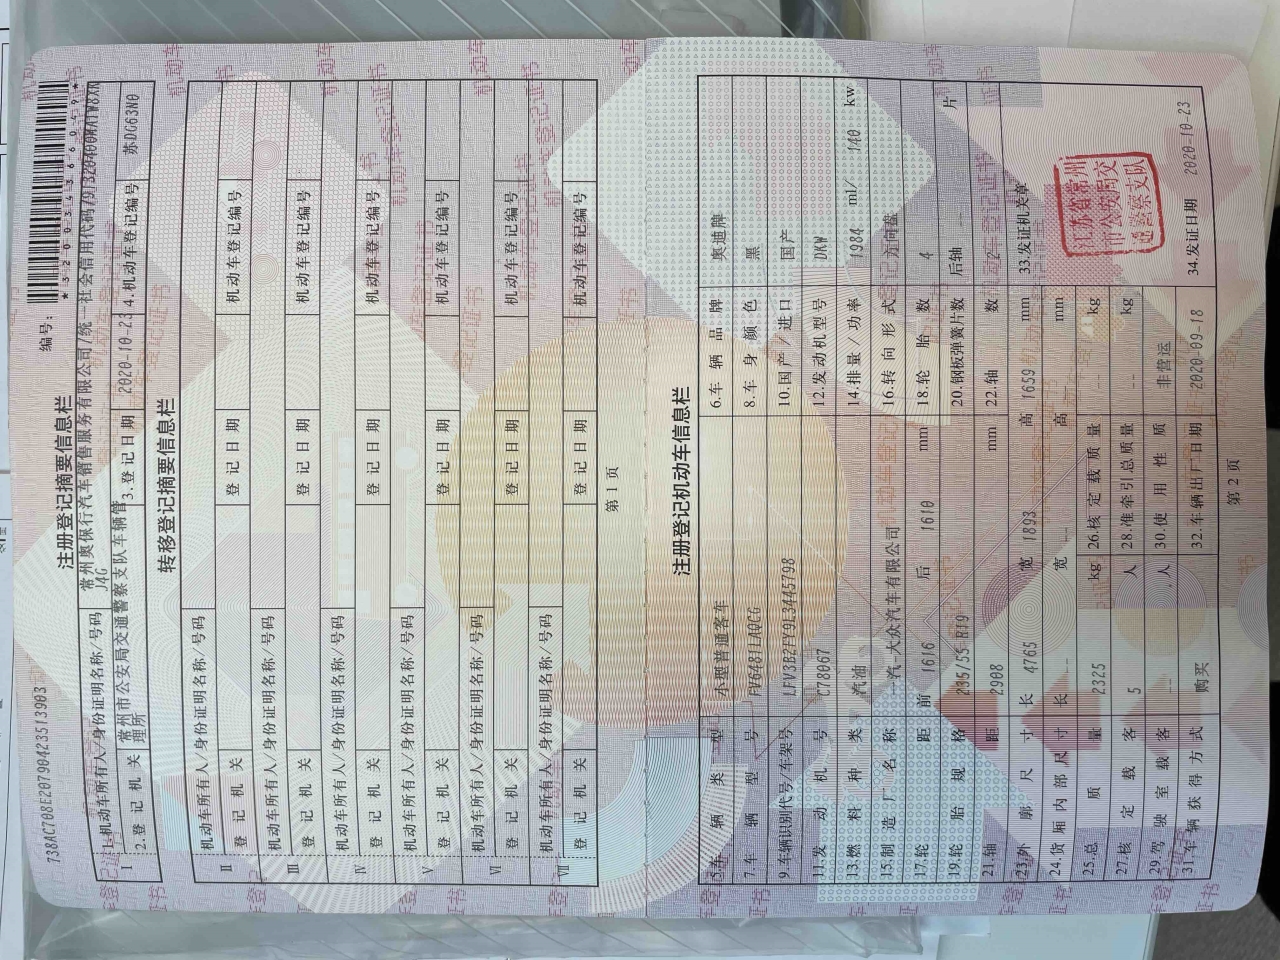 738AC708E2079042351390З
编号：
*320034366049*
注册登记摘要信息栏
Ⅰ 1.机动车所有人/身份证明名称/号码 常州奥保行汽车销售服务有限公司/统一社会信用代码/91320400MA1W8XNJ4G
2.登记机关 常州市公安局交通警察支队车辆管理所 3.登记日期 2020-10-23 4.机动车登记编号 苏DG63N0
转移登记摘要信息栏
Ⅱ 机动车所有人/身份证明名称/号码
登记机关 登记日期 机动车登记编号
Ⅲ 机动车所有人/身份证明名称/号码
登记机关 登记日期 机动车登记编号
Ⅳ 机动车所有人/身份证明名称/号码
登记机关 登记日期 机动车登记编号
Ⅴ 机动车所有人/身份证明名称/号码
登记机关 登记日期 机动车登记编号
Ⅵ 机动车所有人/身份证明名称/号码
登记机关 登记日期 机动车登记编号
Ⅶ 机动车所有人/身份证明名称/号码
登记机关 登记日期 机动车登记编号
第1页
注册登记机动车信息栏
5.车辆类型 小型普通客车 6.车辆品牌 奥迪牌
7.车辆型号 FV6481LAQCG 8.车身颜色 黑
9.车辆识别代号/车架号 LFV3B2FY9L3445798 10.国产/进口 国产
11.发动机号 C78067 12.发动机型号 DKW
13.燃料种类 汽油 14.排量/功率 1984 ml/ 140 kw
15.制造厂名称 一汽-大众汽车有限公司 16.转向形式 方向盘
17.轮距 前 1616 后 1610 mm 18.轮胎数 4
19.轮胎规格 235/55 R19 20.钢板弹簧片数 后轴 -- 片
21.轴距 2908 mm 22.轴数 2
23.外廓尺寸 长 4765 宽 1893 高 1659 mm 33.发证机关章
24.货厢内部尺寸 长 -- 宽 -- 高 -- mm
25.总质量 2325 kg 26.核定载质量 -- kg
27.核定载客 5 人 28.准牵引总质量 -- kg
29.驾驶室载客 -- 人 30.使用性质 非营运
31.车辆获得方式 购买 32.车辆出厂日期 2020-09-18 34.发证日期 2020-10-23
江苏省常州
市公安局交
通警察支队
第2页